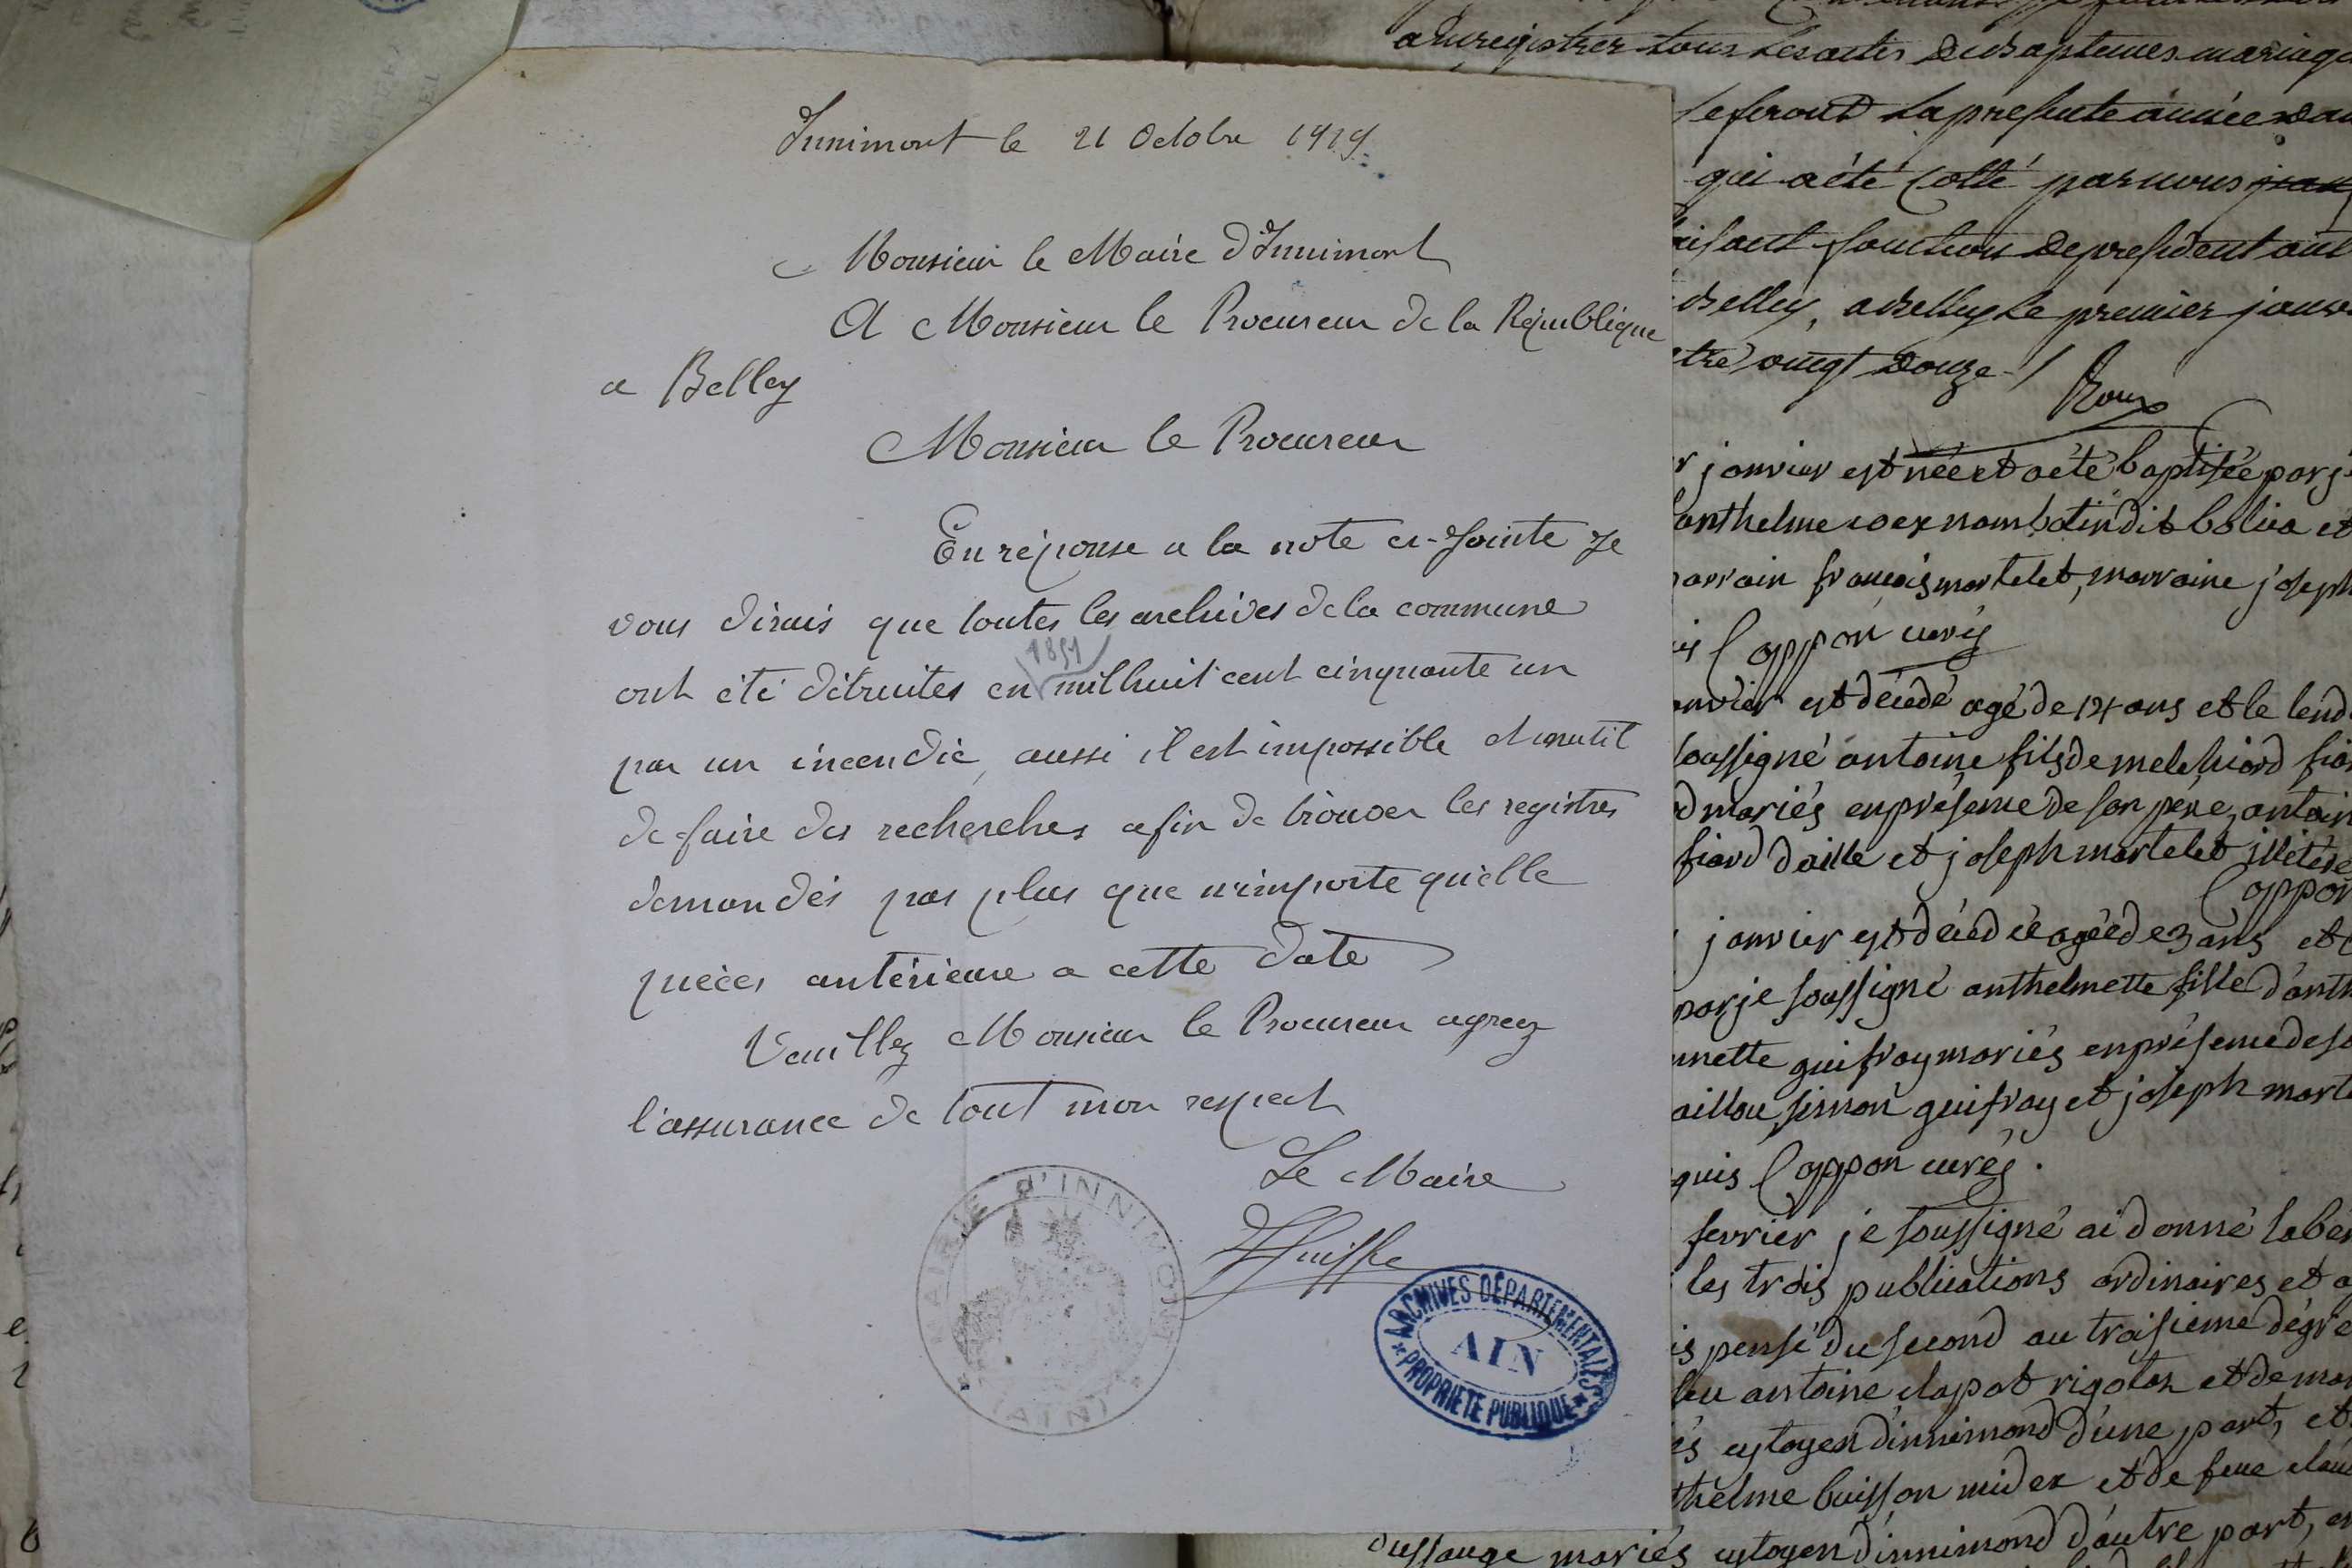 Innimont le 21 Octobre 1919
Monsieur le Maire d'Innimont
A Monsieur le Procureur de la République
a Belley
Monsieur le Procureur
En réponse a la note ci-Jointe Je
vous dirais que toutes les archives de la commune
1851
ont été détruites en mil huit cent cinquante un
par un incendie, aussi il est impossible et inutil
de faire des recherches afin de trouver les registres
demandés pas plus que n'importe qu'elle
pièces antérieure a cette date
Veuillez Monsieur le Procureur agreez
l'assurance de tout mon respect
Le Maire
MAIRIE d'INNIMONT
(AIN)
ARCHIVES DÉPARTEMENTALES
AIN
PROPRIÉTÉ PUBLIQUE
tous les actes de baptemes mariage
se feront la presente année
qui a été cotté par nous
fonction de president
belley, a belley le premier
vingt douze
Roux
janvier est née et a été baptisée par je
anthelme
françois martelet, marraine joseph
Coppon curé
est décédé agé de 14 ans et le lend
soussigné antoine fils de melchiord
mariés en présence de son père, antoin
et joseph martelet
Coppon
janvier est décédée agée de 3 ans et
par je soussigné anthelmette fille d'anth
guifray mariés en présence de
simon guifray et joseph mart
Coppon curé.
fevrier je soussigné ai donné la be
les trois publications ordinaires et
pensé du second au troisieme dégré
antoine clapot rigolon et de mar
cytoyen d'innimond d'une part, et
thelme buisson et de feue clau
mariés cytoyen d'innimond d'autre part, en